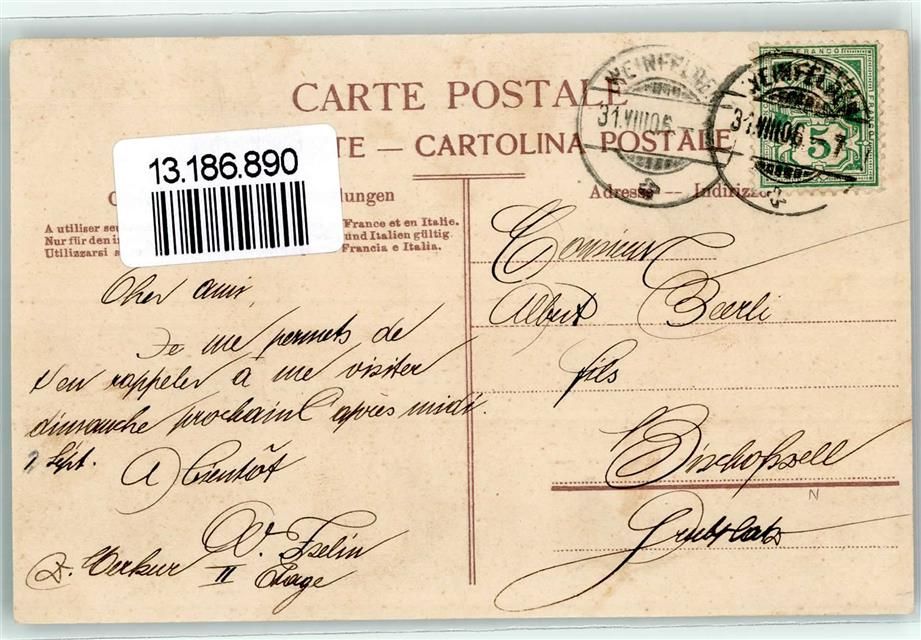 CARTE POSTALE
TE — CARTOLINA POSTALE
13.186.890
FRANCO
5
31.VIII06. 7
31.VIII06
lungen
Adresse — Indirizzo
A utiliser seu
France et en Italie.
Nur für den i
und Italien gültig
Utilizzarsi s
Francia e Italia.
Cher ami,
Je me permets de
rappeler à me visiter
dimanche prochain après midi.
Sept.
A bientôt
W. Iselin
Merkur II Etage
Monsieur
Albert Beerli
fils
Bischofszell
N